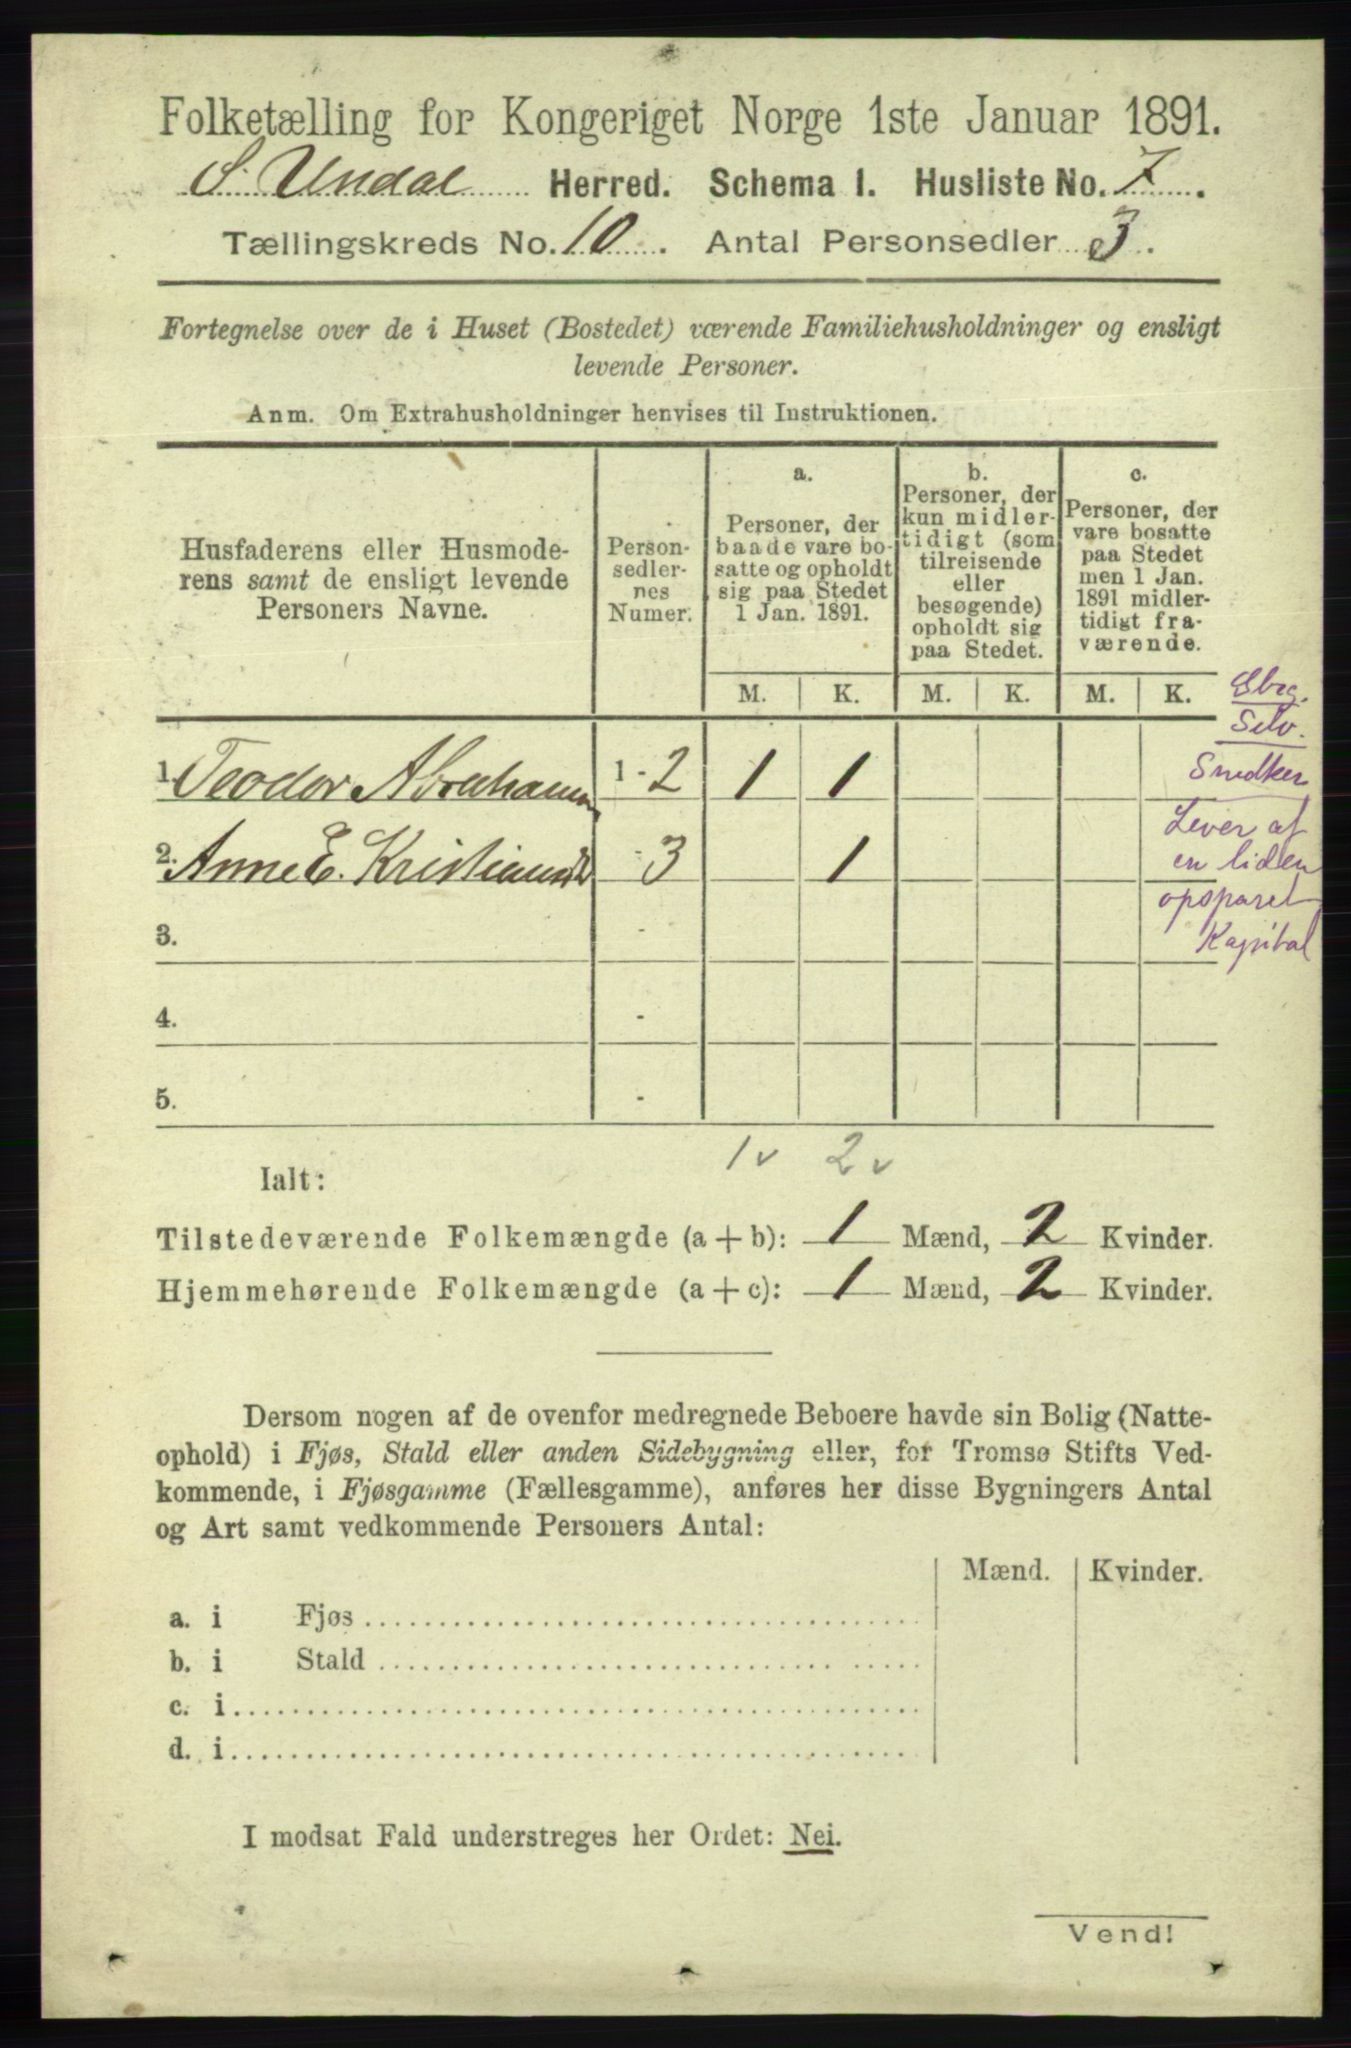 Folketælling for Kongeriget Norge 1ste Januar 1891.
S. Undal Herred. Schema 1. Husliste No. 7.
Tællingskreds No. 10. Antal Personsedler 3.
Fortegnelse over de i Huset (Bostedet) værende Familiehusholdninger og ensligt
levende Personer.
Anm. Om Extrahusholdninger henvises til Instruktionen.
Husfaderens eller Husmode-
rens samt de ensligt levende
Personers Navne.
Person-
sedler-
nes
Numer.
a.
Personer, der
baade vare bo-
satte og opholdt
sig paa Stedet
1 Jan. 1891.
b.
Personer, der
kun midler-
tidigt (som
tilreisende
eller
besøgende)
opholdt sig
paa Stedet.
c.
Personer, der
vare bosatte
paa Stedet
men 1 Jan.
1891 midler-
tidigt fra-
værende.
M. K. M. K. M. K.
Selv.
1. Teodor Abrahamsen 1 - 2 1 1
Snedker
2. Anne E. Kristiansdt - 3 1
Lever af
en liden
opsparet
Kapital
3. -
4. -
5. -
1 v 2 v
Ialt:
Tilstedeværende Folkemængde (a + b): 1 Mænd, 2 Kvinder.
Hjemmehørende Folkemængde (a + c): 1 Mænd, 2 Kvinder.
Dersom nogen af de ovenfor medregnede Beboere havde sin Bolig (Natte-
ophold) i Fjøs, Stald eller anden Sidebygning eller, for Tromsø Stifts Ved-
kommende, i Fjøsgamme (Fællesgamme), anføres her disse Bygningers Antal
og Art samt vedkommende Personers Antal:
Mænd. Kvinder.
a. i Fjøs
b. i Stald
c. i
d. i
I modsat Fald understreges her Ordet: Nei.
Vend!